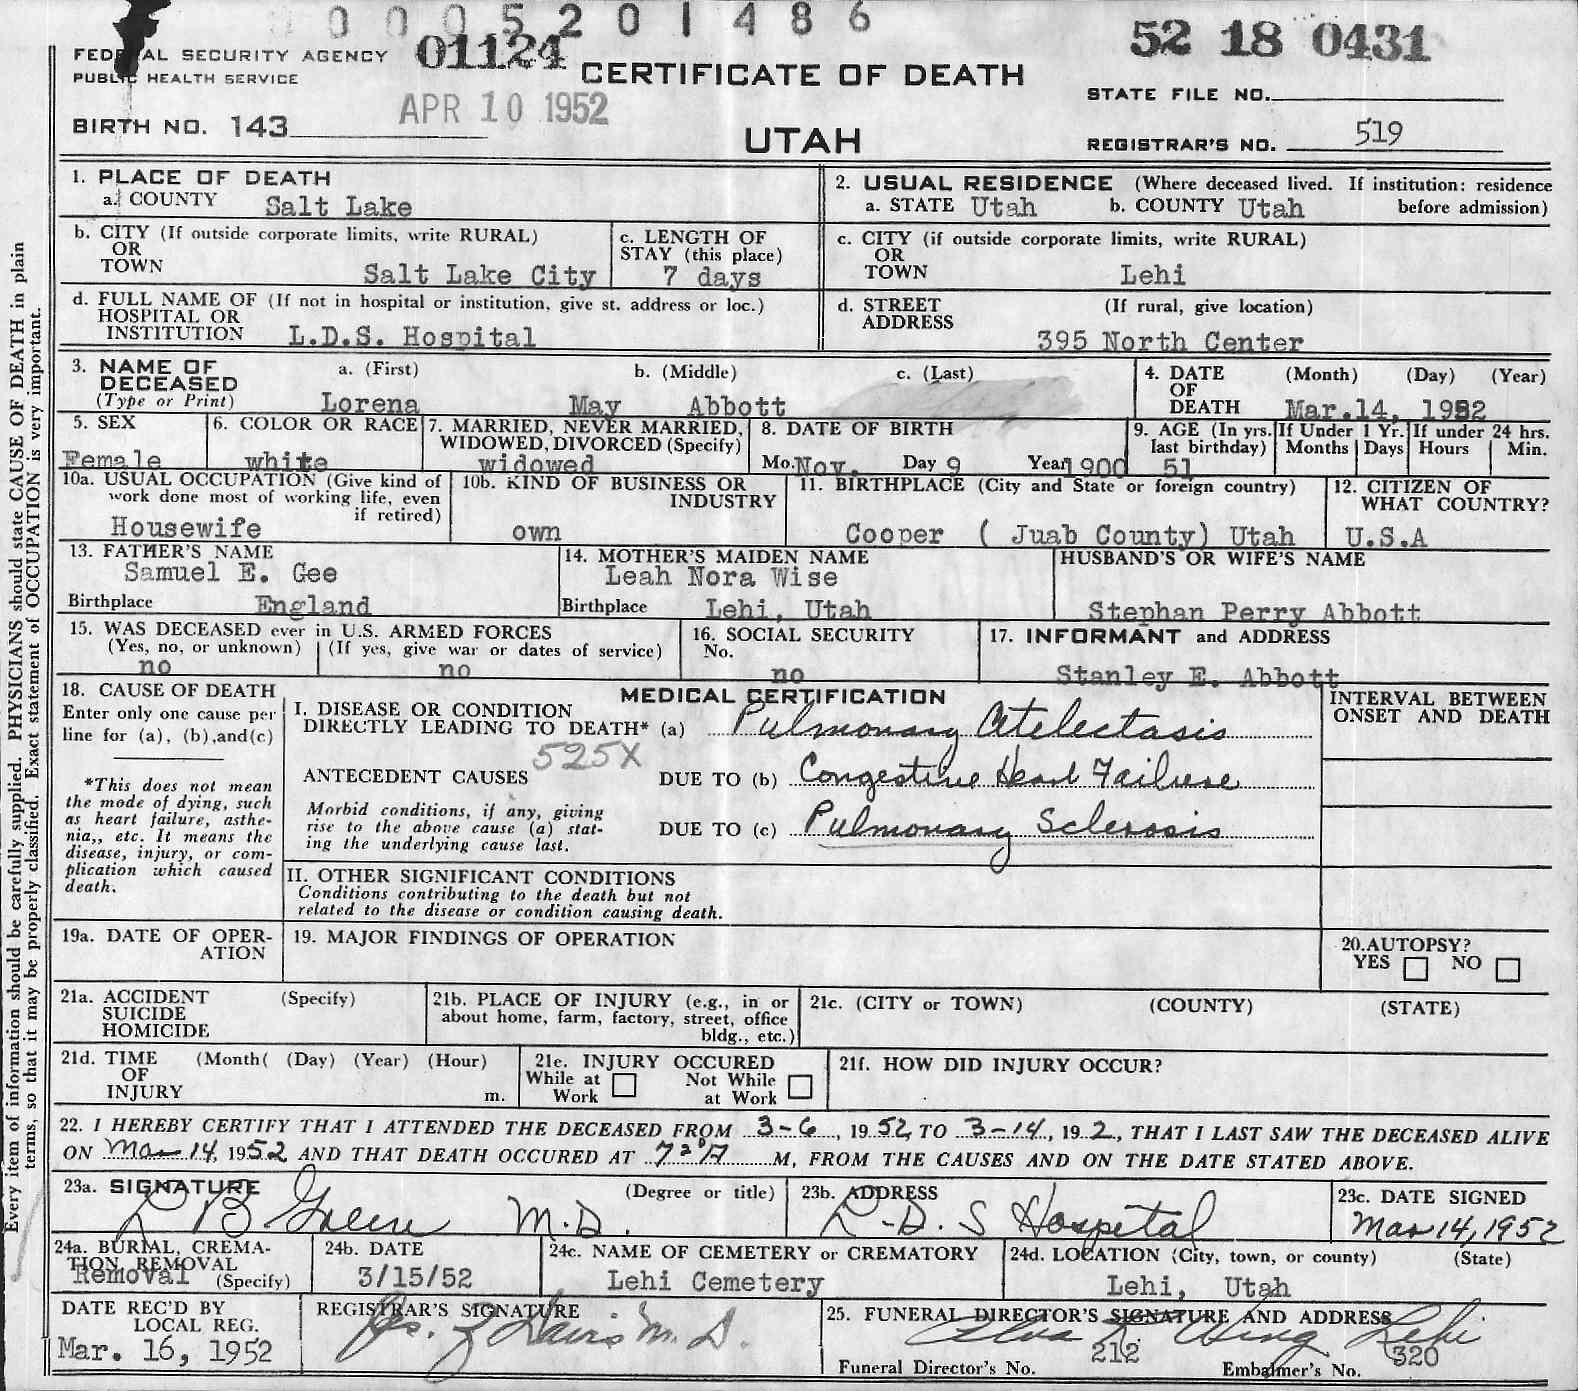 0 0 0 5 2 0 1 4 8 6
FEDERAL SECURITY AGENCY
PUBLIC HEALTH SERVICE
01124
CERTIFICATE OF DEATH
52 18 0431
STATE FILE NO.
BIRTH NO. 143
APR 10 1952
UTAH
REGISTRAR'S NO. 519
1. PLACE OF DEATH
a. COUNTY Salt Lake
2. USUAL RESIDENCE (Where deceased lived. If institution: residence
a. STATE Utah b. COUNTY Utah before admission)
b. CITY (If outside corporate limits, write RURAL)
OR
TOWN Salt Lake City
c. LENGTH OF
STAY (this place)
7 days
c. CITY (if outside corporate limits, write RURAL)
OR
TOWN Lehi
d. FULL NAME OF (If not in hospital or institution, give st. address or loc.)
HOSPITAL OR
INSTITUTION L.D.S. Hospital
d. STREET (If rural, give location)
ADDRESS
395 North Center
3. NAME OF a. (First) b. (Middle) c. (Last)
DECEASED
(Type or Print) Lorena May Abbott
4. DATE (Month) (Day) (Year)
OF
DEATH Mar.14, 1952
5. SEX
Female
6. COLOR OR RACE
white
7. MARRIED, NEVER MARRIED,
WIDOWED, DIVORCED (Specify)
widowed
8. DATE OF BIRTH
Mo. Nov. Day 9 Year 1900
9. AGE (In yrs.
last birthday)
51
If Under 1 Yr.
Months Days
If under 24 hrs.
Hours Min.
10a. USUAL OCCUPATION (Give kind of
work done most of working life, even
if retired)
Housewife
10b. KIND OF BUSINESS OR
INDUSTRY
own
11. BIRTHPLACE (City and State or foreign country)
Cooper ( Juab County) Utah
12. CITIZEN OF
WHAT COUNTRY?
U.S.A
13. FATHER'S NAME
Samuel E. Gee
Birthplace England
14. MOTHER'S MAIDEN NAME
Leah Nora Wise
Birthplace Lehi, Utah
HUSBAND'S OR WIFE'S NAME
Stephan Perry Abbott
15. WAS DECEASED ever in U.S. ARMED FORCES
(Yes, no, or unknown) (If yes, give war or dates of service)
no no
16. SOCIAL SECURITY
No.
no
17. INFORMANT and ADDRESS
Stanley E. Abbott
18. CAUSE OF DEATH
Enter only one cause per
line for (a), (b),and(c)
*This does not mean
the mode of dying, such
as heart failure, asthe-
nia,, etc. It means the
disease, injury, or com-
plication which caused
death.
MEDICAL CERTIFICATION
I. DISEASE OR CONDITION
DIRECTLY LEADING TO DEATH* (a) Pulmonary Atelectasis
525X
ANTECEDENT CAUSES DUE TO (b) Congestive Heart Failure
Morbid conditions, if any, giving
rise to the above cause (a) stat-
ing the underlying cause last.
DUE TO (c) Pulmonary Sclerosis
INTERVAL BETWEEN
ONSET AND DEATH
II. OTHER SIGNIFICANT CONDITIONS
Conditions contributing to the death but not
related to the disease or condition causing death.
19a. DATE OF OPER-
ATION
19. MAJOR FINDINGS OF OPERATION
20.AUTOPSY?
YES NO
21a. ACCIDENT (Specify)
SUICIDE
HOMICIDE
21b. PLACE OF INJURY (e.g., in or
about home, farm, factory, street, office
bldg., etc.)
21c. (CITY or TOWN) (COUNTY) (STATE)
21d. TIME (Month( (Day) (Year) (Hour)
OF
INJURY m.
21e. INJURY OCCURED
While at Not While
Work at Work
21f. HOW DID INJURY OCCUR?
22. I HEREBY CERTIFY THAT I ATTENDED THE DECEASED FROM 3-6, 1952 TO 3-14, 192, THAT I LAST SAW THE DECEASED ALIVE
ON Mar 14, 1952 AND THAT DEATH OCCURED AT M, FROM THE CAUSES AND ON THE DATE STATED ABOVE.
23a. SIGNATURE (Degree or title)
L B Green M.D.
23b. ADDRESS
L.D.S Hospital
23c. DATE SIGNED
Mar 14, 1952
24a. BURIAL, CREMA-
TION, REMOVAL
Removal (Specify)
24b. DATE
3/15/52
24c. NAME OF CEMETERY or CREMATORY
Lehi Cemetery
24d. LOCATION (City, town, or county) (State)
Lehi, Utah
DATE REC'D BY
LOCAL REG.
Mar. 16, 1952
REGISTRAR'S SIGNATURE
Davis M.D.
25. FUNERAL DIRECTOR'S SIGNATURE AND ADDRESS
Wing Lehi
Funeral Director's No. 212 Embalmer's No. 320
Every item of information should be carefully supplied. PHYSICIANS should state CAUSE OF DEATH in plain
terms, so that it may be properly classified. Exact statement of OCCUPATION is very important.